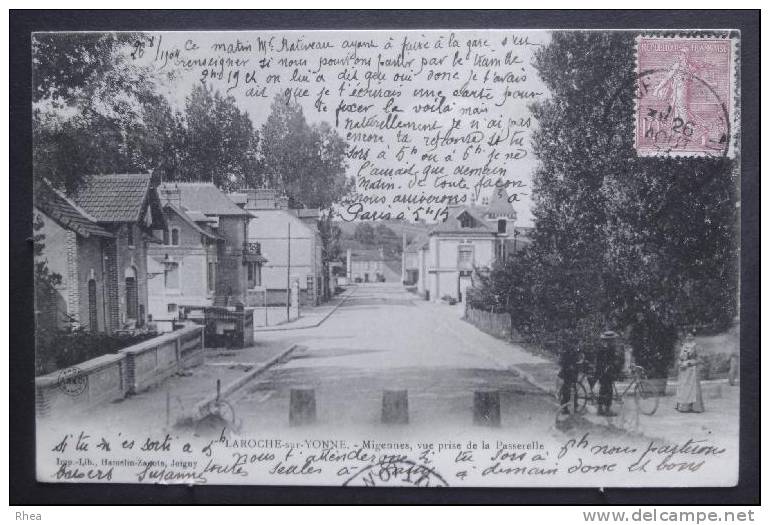 26/8/1904 Ce matin Mr Rativeau ayant à faire à la gare s'est
renseigner si nous pourrions partir par le train de
2h19 et on lui a dit que oui donc je t'avais
dit que je t'écrirais une carte pour
te fixer la voilà mais
naturellement je n'ai pas
encore ta réponse si tu
sors à 5h ou à 6h je ne
l'aurai que demain
matin. de toute façon
nous arriverons à
Paris à 5h15
REPUBLIQUE FRANÇAISE
26
LAROCHE-sur-YONNE. - Migennes, vue prise de la Passerelle
Imp.-Lib. Hamelin-Zanote, Joigny
si tu m'es sorti à 5h
nous t'attendrons si tu sors à 6h nous partirons
toutes seules à
à demain donc et bons
baisers Suzanne
Rhea
http://www.delcampe.net